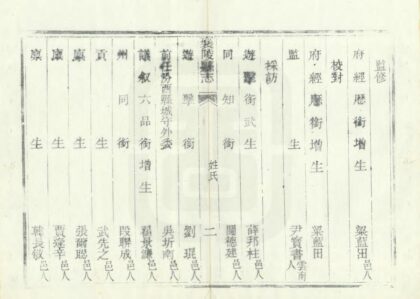 監修
府經歷銜增生 梁藍田邑人
校對
府經歷銜增生 梁藍田
監生 尹寶書雲南人
採訪
遊擊銜武生 薛邦柱
同知銜 關德建
襄陵縣志 姓氏 二
遊擊銜 劉琨
前任芮西縣城守外委 吳圻南
議敘六品銜增生 程景濂邑人
州同銜 段聯成邑人
貢生 武先之邑人
廩生 張爾聰邑人
廩生 賈遵辛邑人
廩生 韓長敘邑人